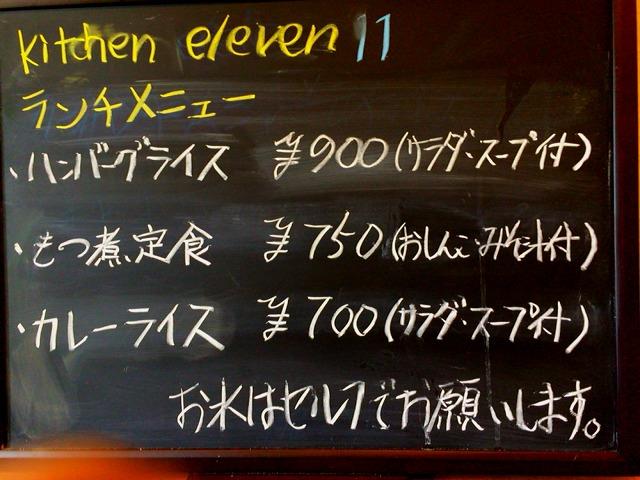 kitchen eleven 11
ランチメニュー
・ハンバーグライス ¥900(サラダ・スープ付)
・もつ煮定食 ¥750(おしんこ・みそ汁付)
・カレーライス ¥700(サラダ・スープ付)
お水はセルフでお願いします。